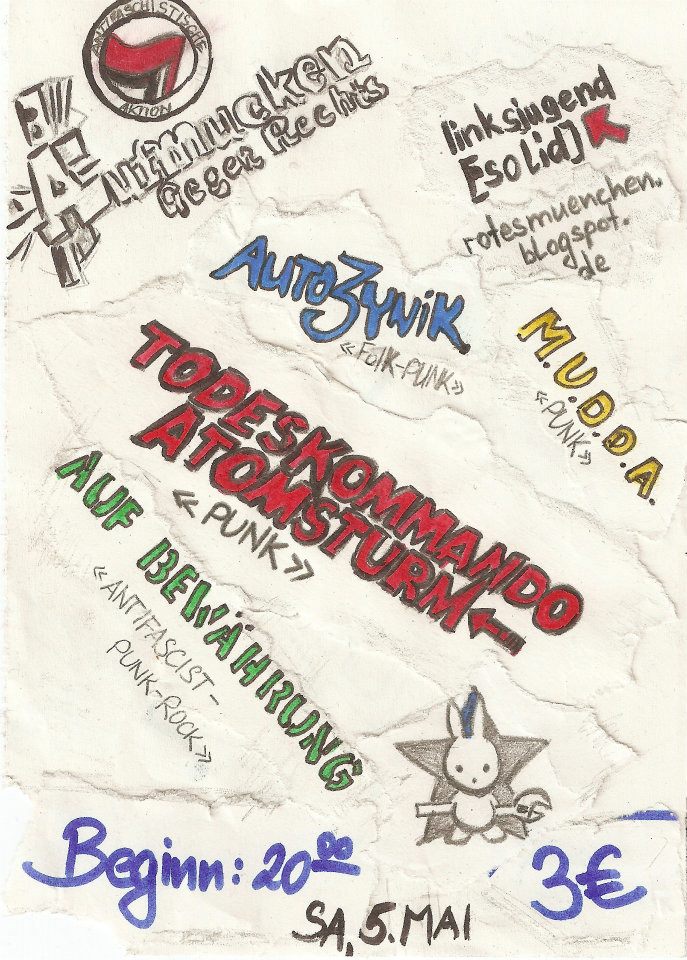 ANTIFASCHISTISCHE
AKTION
Aufmucken
Gegen Rechts
linksjugend
[solid]
rotesmuenchen.
blogspot.
de
AutoZynik
«FOlK-PUNK»
M.U.D.D.A.
«PUNK»
TODESKOMMANDO
ATOMSTURM
«PUNK»
AUF BEWÄHRUNG
«ANTIFASCIST-
PUNK-ROCK»
Beginn: 20⁰⁰
3€
SA, 5. MAI